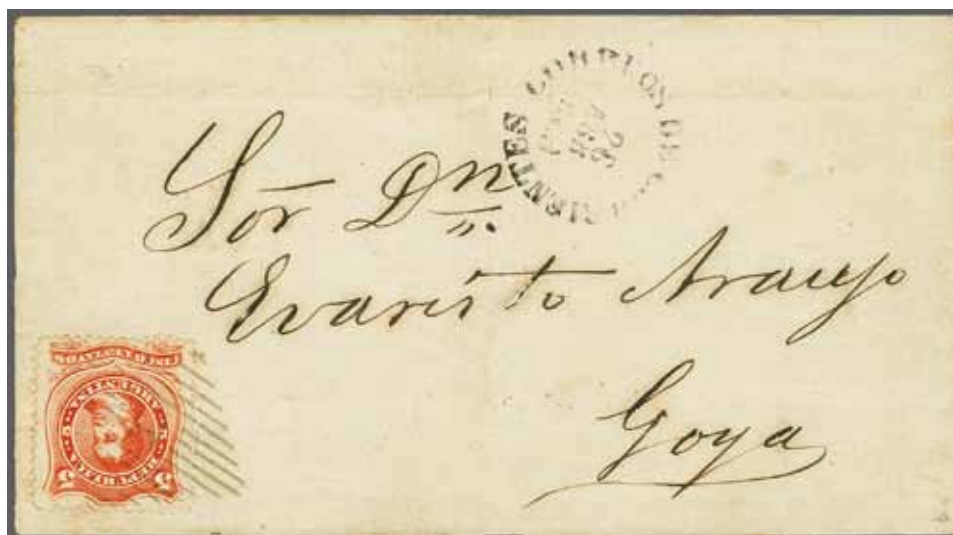 CORREOS DE CORRIENTES
26
AGO
Sor Dn
Evaristo Araujo
Goya
5 REPUBLICA ARGENTINA 5